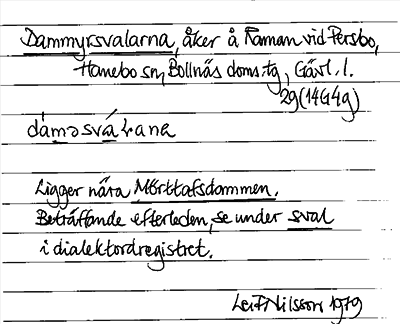 Dammyrsvalarna, åker å Raman vid Persbo,
Hanebo sn, Bollnäs doms.tg, Gävl. l.
29(14G4g)
dàmǝsváLana
Ligger nära Mörttafsdammen.
Beträffande efterleden, se under sval
i dialektordregistret.
Leif Nilsson 1979